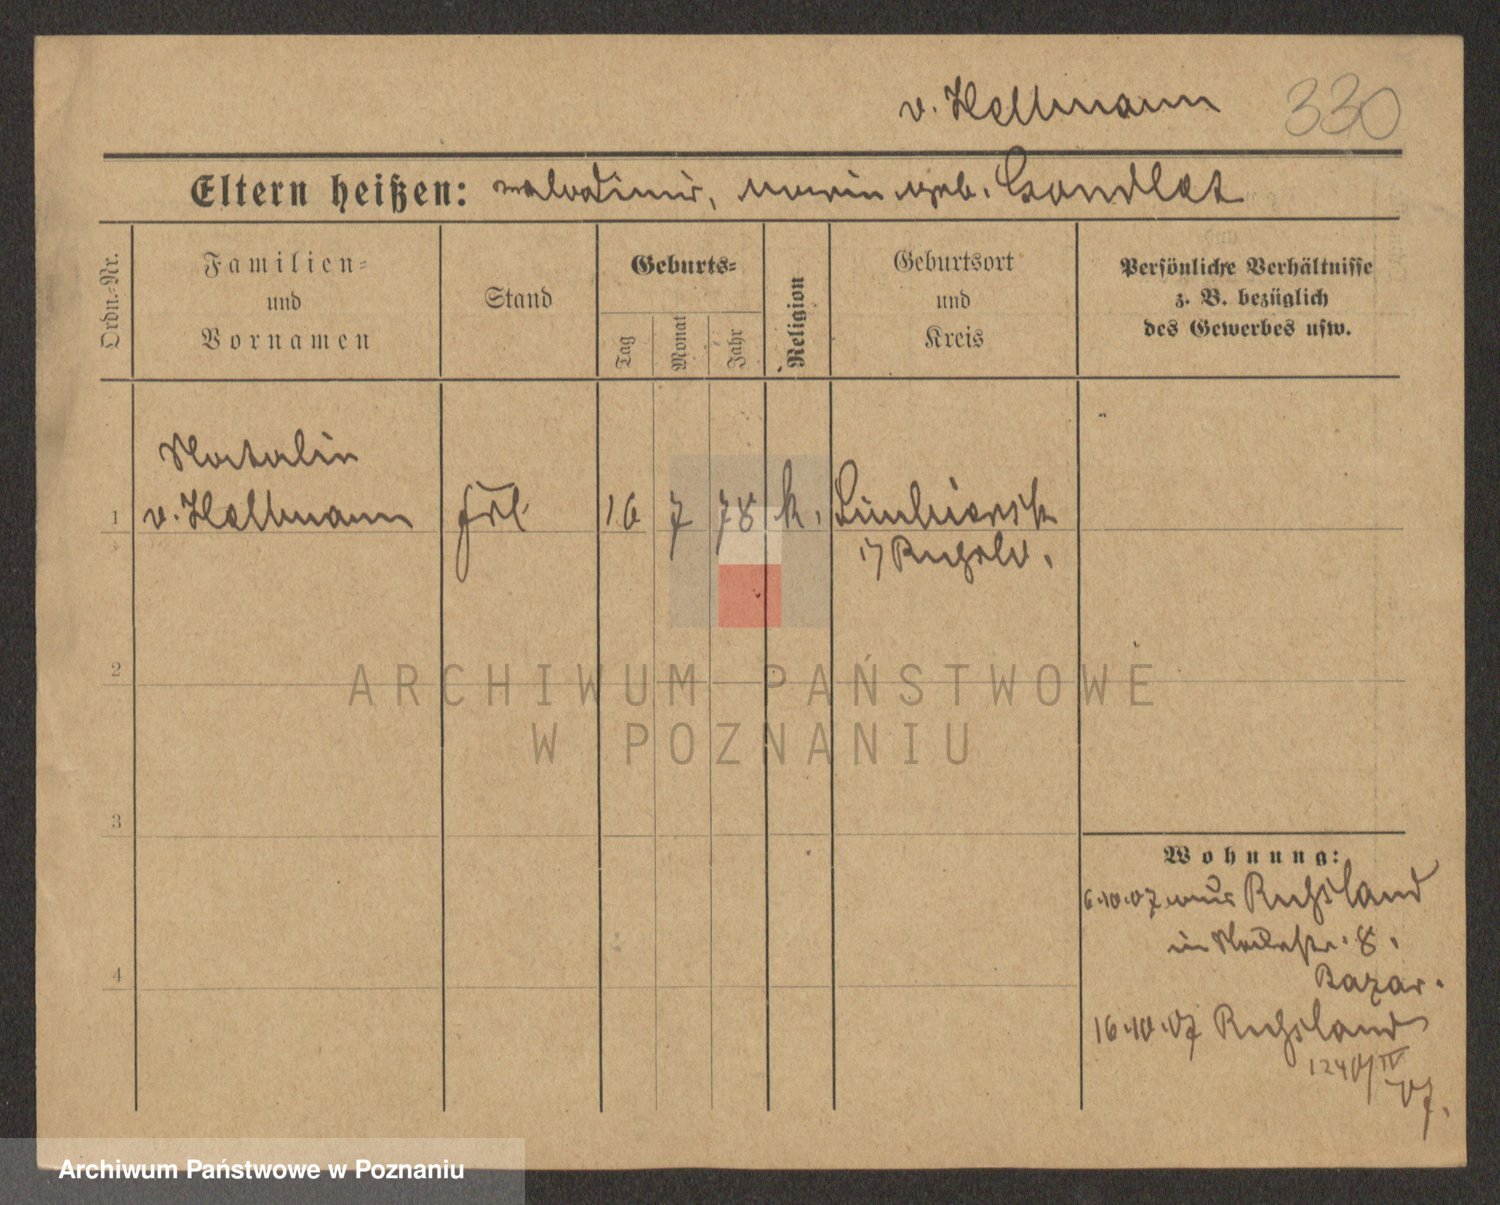 v. Hellmann 330
Eltern heißen: Maria geb.
Ordn.-Nr.
Familien-
und
Vornamen
Stand
Geburts-
Tag
Monat
Jahr
Religion
Geburtsort
und
Kreis
Persönliche Verhältnisse
z. B. bezüglich
des Gewerbes usw.
Natalie
1 v. Hellmann Frl. 16 7 78 k.
i/ Rußld.
2
ARCHIWUM PAŃSTWOWE
W POZNANIU
3
Wohnung:
6.10.07 aus Rußland
in Neuestr. 8.
Bazar.
4
16.10.07 Rußland
1240/IV
07.
Archiwum Państwowe w Poznaniu